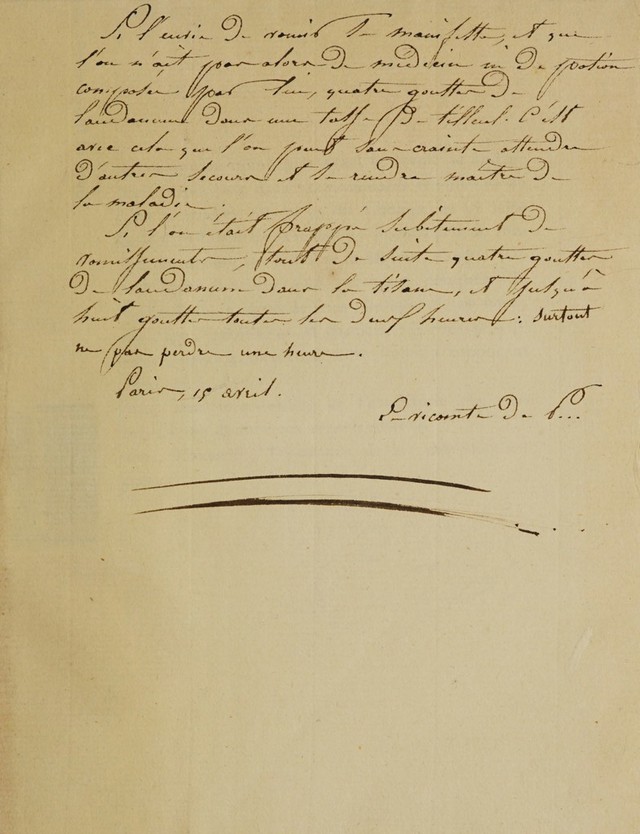 Si l'envie de vomir se manifeste, et que
l'on n'ait pas alors de médecin ni de potion
composée par lui, quatre gouttes de
laudanum dans une tasse de tilleul. C'est
avec cela que l'on peut sans crainte attendre
d'autres secours et se rendre maître de
la maladie.
Si l'on était frappé subitement de
vomissements, tout de suite quatre gouttes
de laudanum dans la tisane, et jusqu'à
huit gouttes toutes les deux heures : surtout
ne pas perdre une heure.
Paris, 15 avril.
Le vicomte de P...